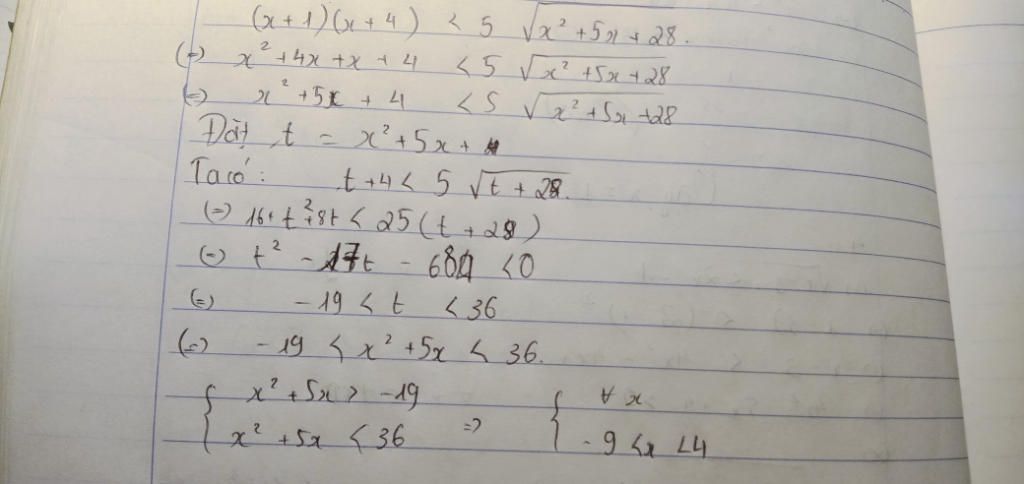 (x + 1)(x + 4) < 5 √(x² + 5x + 28).
(=) x² + 4x + x + 4 < 5 √(x² + 5x + 28)
(=) x² + 5x + 4 < 5 √(x² + 5x + 28)
Đặt t = x² + 5x +
Ta có: t + 4 < 5 √(t + 28).
(=) 16 + t² + 8t < 25 (t + 28)
(=) t² - 17t - 684 < 0
(=) - 19 < t < 36
(=) - 19 < x² + 5x < 36.
{ x² + 5x > - 19 => { ∀ x
{ x² + 5x < 36 { - 9 < x < 4